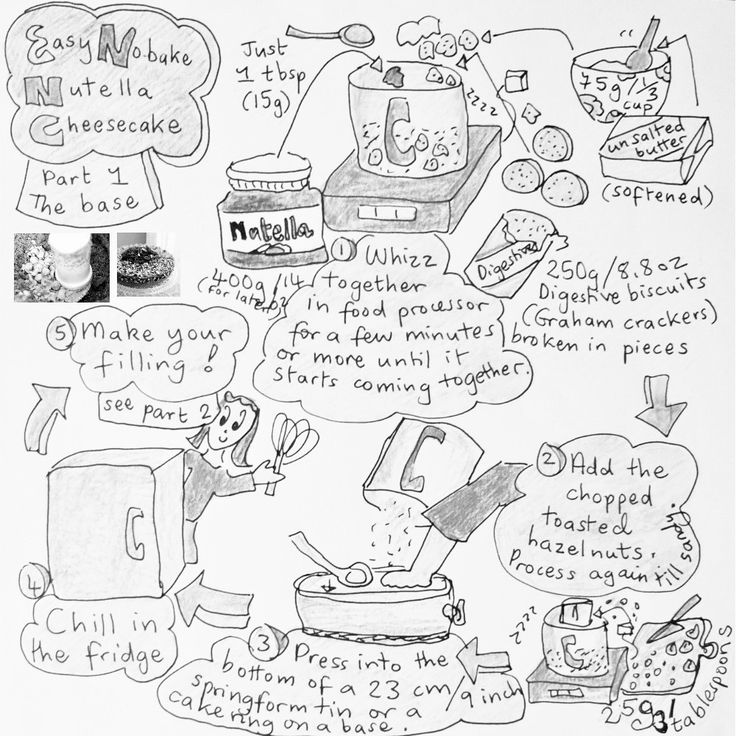 Easy No-bake
Nutella
Cheesecake
Part 1
The base
Just
1 tbsp
(15g)
Nutella
400g/14 oz
(for later)
zzzz
75g/1/3
cup
unsalted
butter
(softened)
Digestives
250g/8.8oz
Digestive biscuits
(Graham crackers)
broken in pieces
1 Whizz
together
in food processor
for a few minutes
or more until it
starts coming together.
2 Add the
chopped
toasted
hazelnuts.
Process again till sandy.
zzzz
25g/3 tablespoons
3 Press into the
bottom of a 23 cm/9 inch
springform tin or a
cake ring on a base.
4
Chill in
the fridge
5 Make your
filling!
see part 2